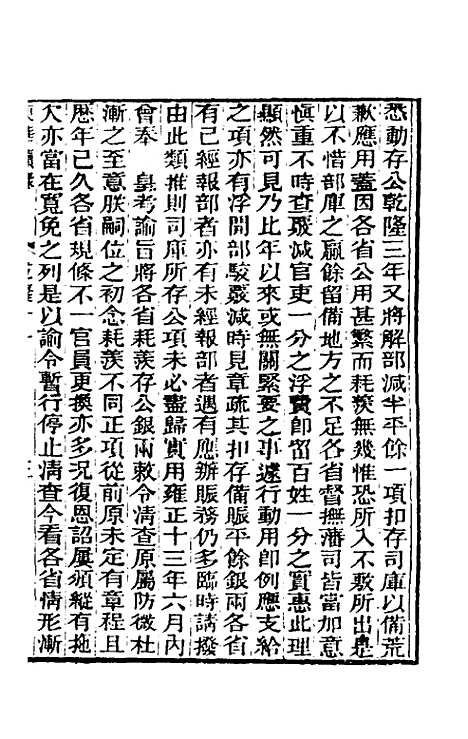 悉動存公乾隆三年又將解部減半平餘一項扣存司庫以備荒
歉應用蓋因各省公用甚繁而耗羨無幾惟恐所入不敷所出是
以不惜部庫之贏餘留備地方之不足各省督撫藩司皆當加意
慎重不時查覈減官吏一分之浮費卽留百姓一分之實惠此理
顯然可見乃比年以來或無關緊要之事遽行動用卽例應支給
之項亦有浮開部駁覈減時見章疏其扣存備賑平餘銀兩各省
有已經報部者亦有未經報部者遇有應辦賑務仍多臨時請撥
由此類推則司庫所存公項未必盡歸實用雍正十三年六月內
曾奉　皇考諭旨將各省耗羨存公銀兩敕令清查原屬防微杜
漸之至意朕嗣位之初念耗羨不同正項從前原未定有章程且
歷年已久各省現條不一官員更換亦多況復恩詔屢頒縱有拖
欠亦當在寬免之列是以諭令暫行停止清查今看各省情形漸